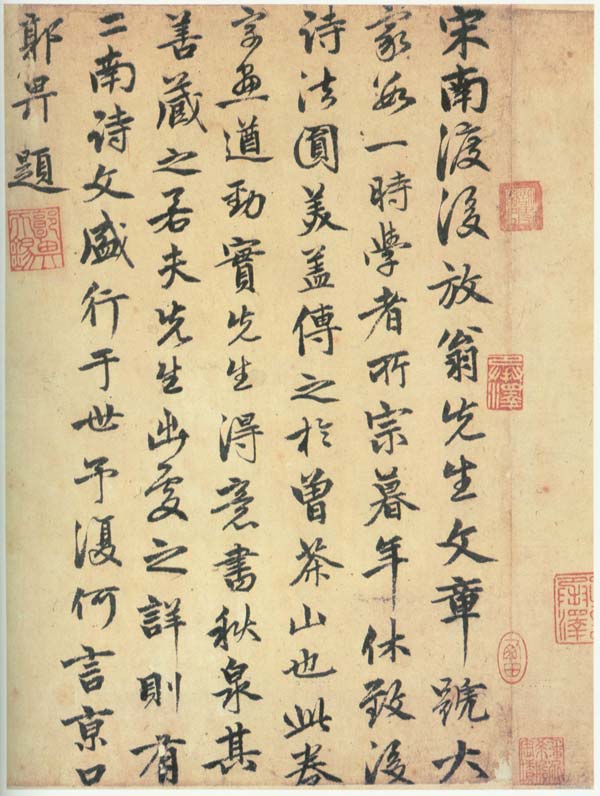 宋南渡後放翁先生文章號大
家為一時學者所宗暮年休致後
詩法圓美盖傳之於曾茶山也此卷
字畫遒勁實先生得意書秋泉其
善藏之若夫先生出處之詳則有
二南詩文盛行于世予復何言京口
郭畀題
郭畀天錫